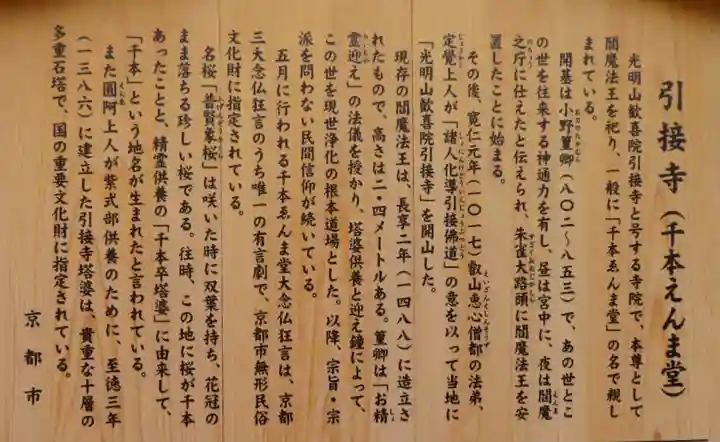 引接寺（千本えんま堂）
光明山歓喜院引接寺と号する寺院で、本尊として
閻魔法王を祀り、一般に「千本ゑんま堂」の名で親し
まれている。
開基は小野篁卿（八〇二～八五三）で、あの世とこ
の世を往来する神通力を有し、昼は宮中に、夜は閻魔
之庁に仕えたと伝えられ、朱雀大路頭に閻魔法王を安
置したことに始まる。
その後、寛仁元年（一〇一七）叡山恵心僧都の法弟、
定覚上人が「諸人化導引接佛道」の意を以って当地に
「光明山歓喜院引接寺」を開山した。
現存の閻魔法王は、長享二年（一四八八）に造立さ
れたもので、高さは二・四メートルある。篁卿は「お精
霊迎え」の法儀を授かり、塔婆供養と迎え鐘によって、
この世を現世浄化の根本道場とした。以降、宗旨・宗
派を問わない民間信仰が続いている。
五月に行われる千本ゑんま堂大念仏狂言は、京都
三大念仏狂言のうち唯一の有言劇で、京都市無形民俗
文化財に指定されている。
名桜「普賢象桜」は咲いた時に双葉を持ち、花冠の
まま落ちる珍しい桜である。往時、この地に桜が千本
あったことと、精霊供養の「千本卒塔婆」に由来して、
「千本」という地名が生まれたと言われている。
また圓阿上人が紫式部供養のために、至徳三年
（一三八六）に建立した引接寺塔婆は、貴重な十層の
多重石塔で、国の重要文化財に指定されている。
京都市